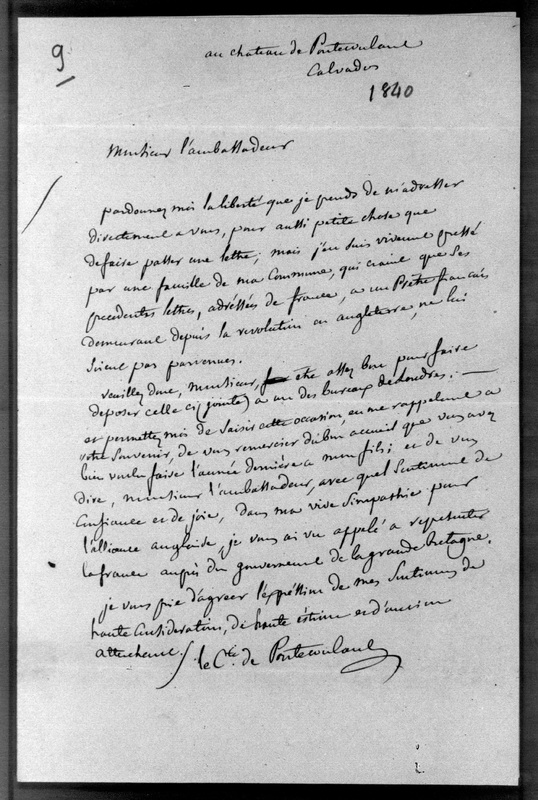 9
au chateau de Pontecoulant
Calvados
1840
Monsieur l'ambassadeur
pardonnez moi la liberté que je prends de m'adresser
directement a vous, pour aussi petite chose que
de faire passer une lettre; mais j'en suis vivement pressé
par une famille de ma Commune, qui craint que ses
precedentes lettres, adréssées de france, a un Prêtre français
demeurant depuis la revolution en angleterre, ne lui
soient pas parvenues.
veuillez donc, monsieur, être assez bon pour faire
deposer celle ci (jointe) a un des bureaux de Londres. —
et permettez moi de saisir cette occasion, en me rappelant a
votre souvenir, de vous remercier du bon accueil que vous avez
bien voulu faire l'année dernière a mon fils; et de vous
dire, monsieur l'ambassadeur, avec quel sentiment de
Confiance et de joie, dans ma vive simpathie pour
l'alliance anglaise, je vous ai vu appelé a representer
la france auprès du gouvernement de la grande bretagne.
je vous prie d'agreer l'expression de mes sentimens de
haute Consideration, de haute éstime et d'ancien
attachement. / le Cte. de Pontecoulant